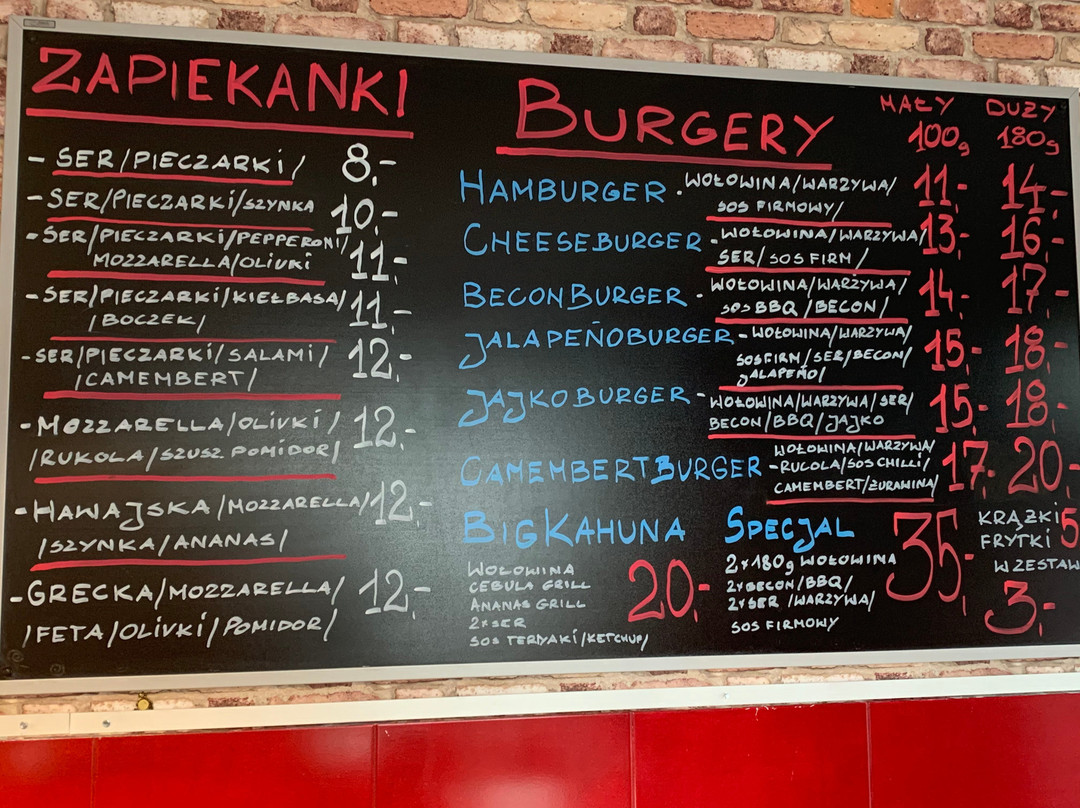 ZAPIEKANKI
- SER/PIECZARKI/ 8,-
- SER/PIECZARKI/SZYNKA 10,-
- SER/PIECZARKI/PEPPERONI/
MOZZARELLA/OLIVKI 11,-
- SER/PIECZARKI/KIEŁBASA/
/BOCZEK/ 11,-
- SER/PIECZARKI/SALAMI/
/CAMEMBERT/ 12,-
- MOZZARELLA/OLIVKI/
/RUKOLA/SZUSZ POMIDOR/ 12,-
- HAWAJSKA/MOZZARELLA/ 12,-
/SZYNKA/ANANAS/
- GRECKA/MOZZARELLA/ 12,-
/FETA/OLIVKI/POMIDOR/
BURGERY
MAŁY DUŻY
100g 180g
HAMBURGER - WOŁOWINA/WARZYWA/ 11,- 14,-
SOS FIRMOWY/
CHEESEBURGER - WOŁOWINA/WARZYWA/ 13,- 16,-
SER/SOS FIRM/
BECONBURGER - WOŁOWINA/WARZYWA/ 14,- 17,-
SOS BBQ/BECON/
JALAPEÑOBURGER - WOŁOWINA/WARZYWA/ 15,- 18,-
SOSFIRM/SER/BECON/
JALAPEÑO/
JAJKOBURGER - WOŁOWINA/WARZYWA/SER/ 15,- 18,-
BECON/BBQ/JAJKO
CAMEMBERTBURGER WOŁOWINA/WARZYWA/ 17,- 20,-
- RUCOLA/SOS CHILLI/
CAMEMBERT/ŻURAWINA/
BIGKAHUNA
WOŁOWINA
CEBULA GRILL
ANANAS GRILL
2xSER
SOS TERIYAKI/KETCHUP/
20,-
SPECJAL
2x180g WOŁOWINA
2xBECON/BBQ/
2xSER/WARZYWA/
SOS FIRMOWY
35,-
KRĄŻKI 5
FRYTKI
W ZESTAW
3,-